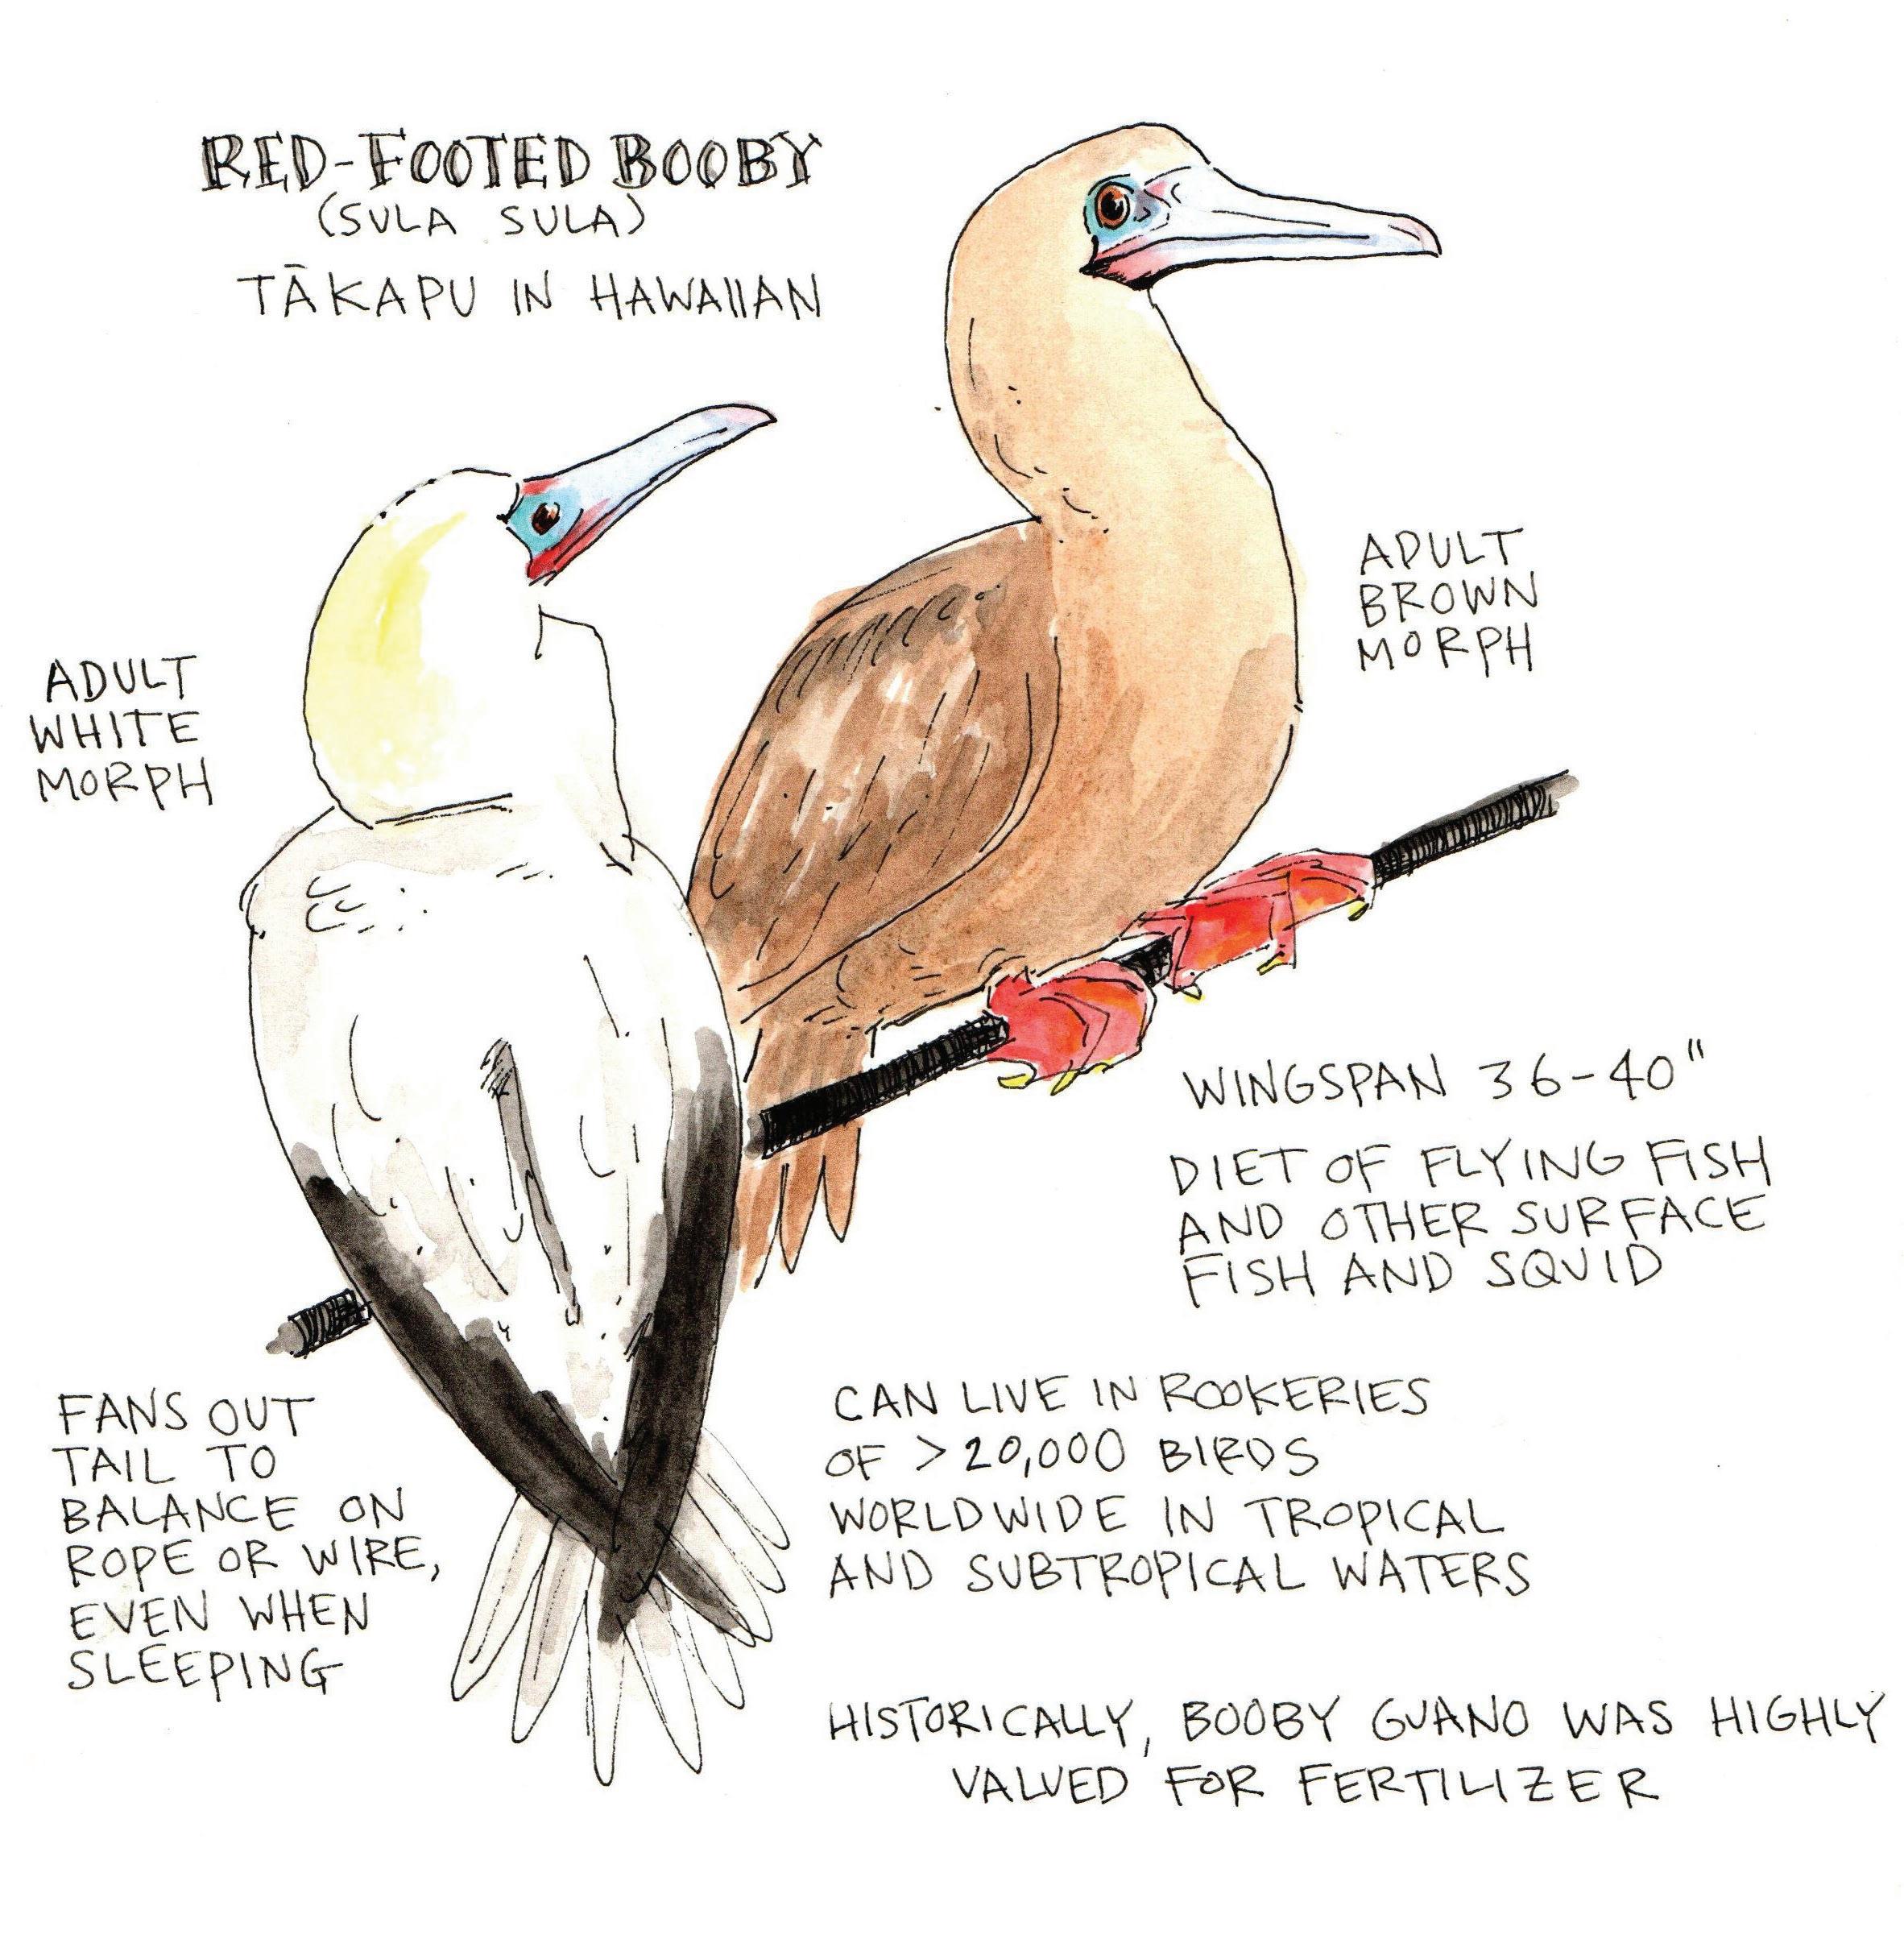 RED-FOOTED BOOBY
(SULA SULA)
TĀKAPU IN HAWAIIAN
ADULT
WHITE
MORPH
ADULT
BROWN
MORPH
WINGSPAN 36-40"
DIET OF FLYING FISH
AND OTHER SURFACE
FISH AND SQUID
FANS OUT
TAIL TO
BALANCE ON
ROPE OR WIRE,
EVEN WHEN
SLEEPING
CAN LIVE IN ROOKERIES
OF >20,000 BIRDS
WORLDWIDE IN TROPICAL
AND SUBTROPICAL WATERS
HISTORICALLY, BOOBY GUANO WAS HIGHLY
VALUED FOR FERTILIZER